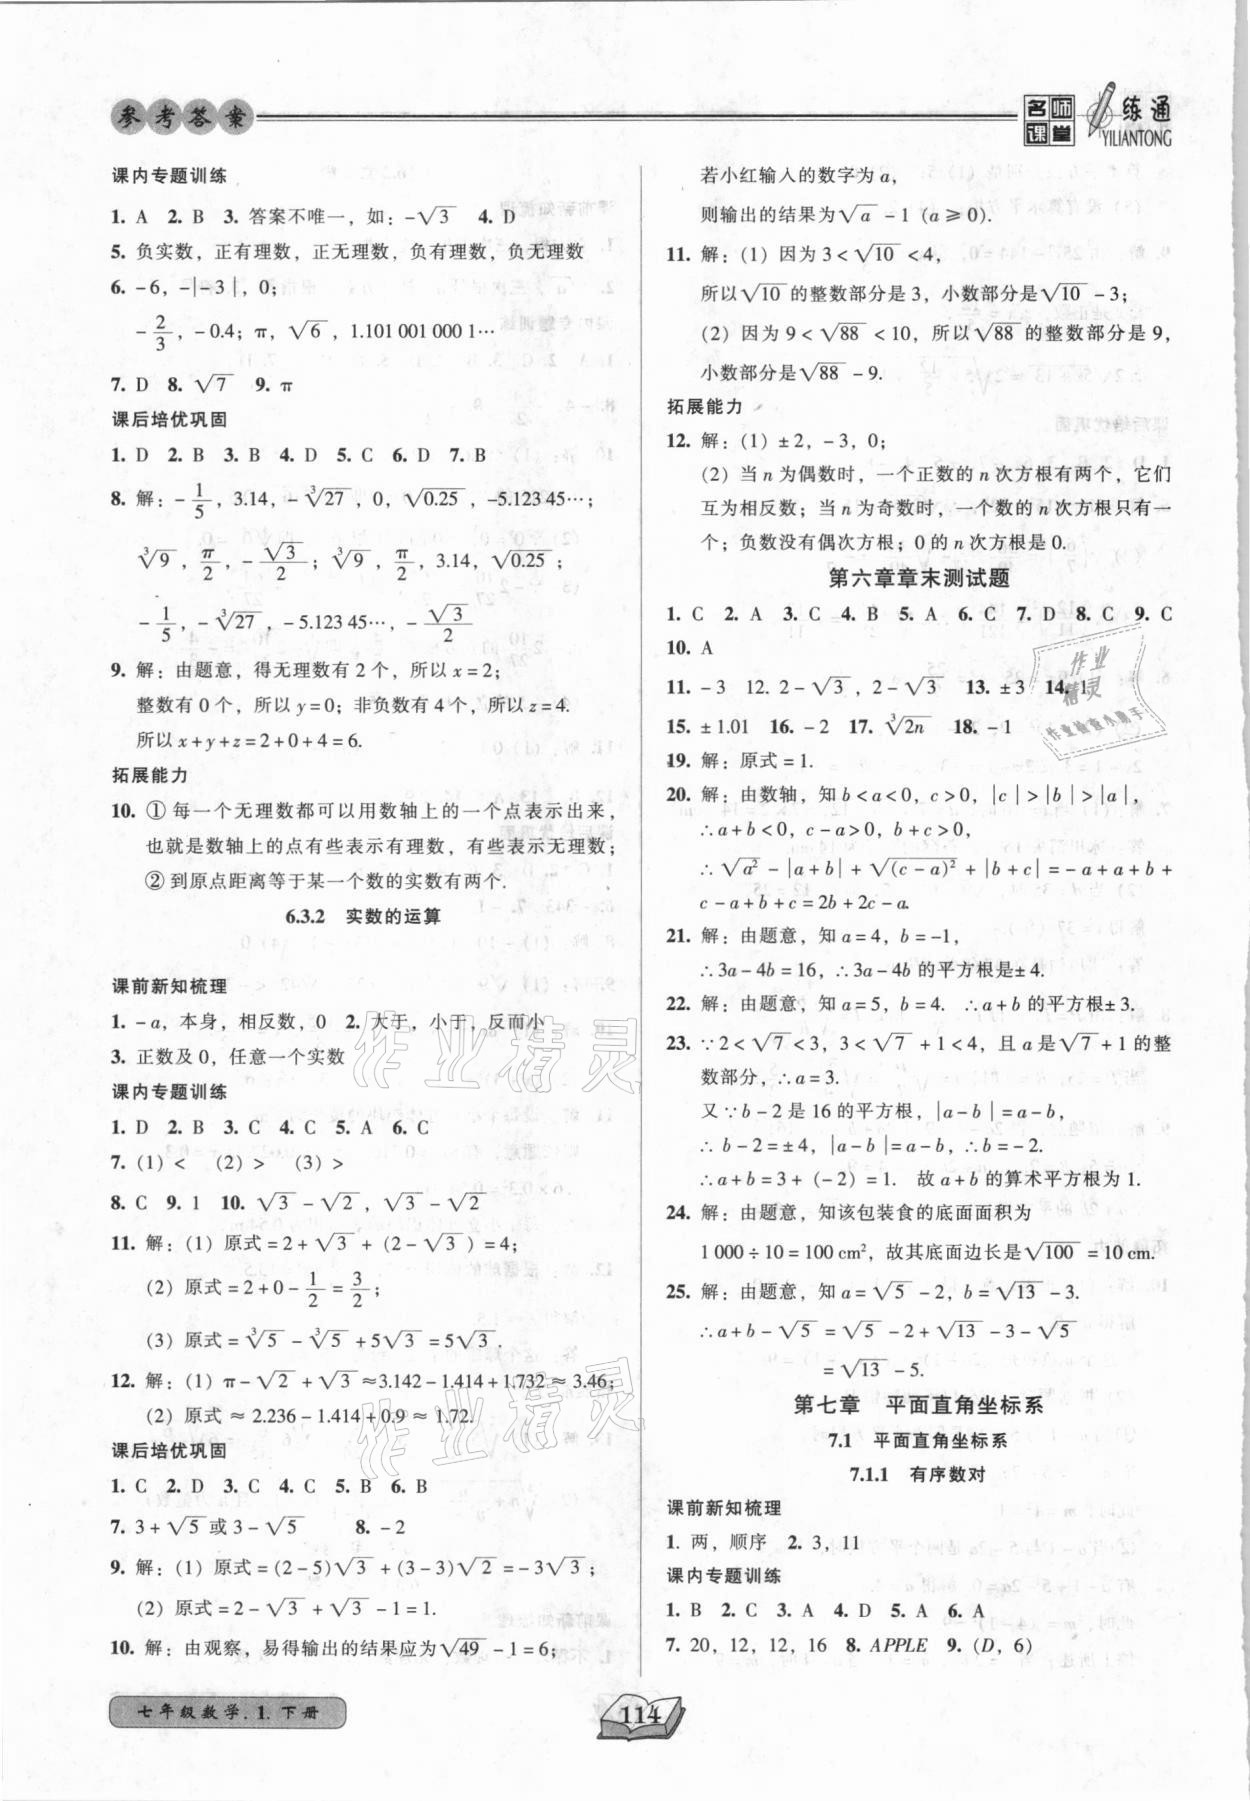 参考答案
名师课堂 一练通
YILIANTONG
课内专题训练
1. A 2. B 3. 答案不唯一，如：-√3 4. D
5. 负实数，正有理数，正无理数，负有理数，负无理数
6. -6，-|-3|，0；
-2/3，-0.4；π，√6，1.101 001 000 1…
7. D 8. √7 9. π
课后培优巩固
1. D 2. B 3. B 4. D 5. C 6. D 7. B
8. 解：-1/5，3.14，-∛27，0，√0.25，-5.123 45…；
∛9，π/2，-√3/2；∛9，π/2，3.14，√0.25；
-1/5，-∛27，-5.123 45…，-√3/2
9. 解：由题意，得无理数有 2 个，所以 x=2；
整数有 0 个，所以 y=0；非负数有 4 个，所以 z=4.
所以 x+y+z=2+0+4=6.
拓展能力
10. ① 每一个无理数都可以用数轴上的一个点表示出来，
也就是数轴上的点有些表示有理数，有些表示无理数；
② 到原点距离等于某一个数的实数有两个.
6.3.2 实数的运算
课前新知梳理
1. -a，本身，相反数，0 2. 大于，小于，反而小
3. 正数及 0，任意一个实数
课内专题训练
1. D 2. B 3. C 4. C 5. A 6. C
7. (1) < (2) > (3) >
8. C 9. 1 10. √3-√2，√3-√2
11. 解：(1) 原式=2+√3+(2-√3)=4；
(2) 原式=2+0-1/2=3/2；
(3) 原式=∛5-∛5+5√3=5√3.
12. 解：(1) π-√2+√3≈3.142-1.414+1.732≈3.46；
(2) 原式≈2.236-1.414+0.9≈1.72.
课后培优巩固
1. C 2. D 3. C 4. C 5. B 6. B
7. 3+√5或3-√5 8. -2
9. 解：(1) 原式=(2-5)√3+(3-3)√2=-3√3；
(2) 原式=2-√3+√3-1=1.
10. 解：由观察，易得输出的结果应为√49-1=6；
若小红输入的数字为 a，
则输出的结果为√a-1 (a≥0).
11. 解：(1) 因为 3<√10<4，
所以√10的整数部分是 3，小数部分是√10-3；
(2) 因为 9<√88<10，所以√88的整数部分是 9，
小数部分是√88-9.
拓展能力
12. 解：(1) ±2，-3，0；
(2) 当 n 为偶数时，一个正数的 n 次方根有两个，它们
互为相反数；当 n 为奇数时，一个数的 n 次方根只有一
个；负数没有偶次方根；0 的 n 次方根是 0.
第六章章末测试题
1. C 2. A 3. C 4. B 5. A 6. C 7. D 8. C 9. C
10. A
11. -3 12. 2-√3，2-√3 13. ±3 14. 1
15. ±1.01 16. -2 17. ∛2n 18. -1
19. 解：原式=1.
20. 解：由数轴，知 b<a<0，c>0，|c|>|b|>|a|，
∴a+b<0，c-a>0，b+c>0，
∴√a²-|a+b|+√(c-a)²+|b+c|=-a+a+b+
c-a+b+c=2b+2c-a.
21. 解：由题意，知 a=4，b=-1，
∴3a-4b=16，∴3a-4b 的平方根是±4.
22. 解：由题意，知 a=5，b=4. ∴a+b 的平方根±3.
23. ∵2<√7<3，3<√7+1<4，且 a 是√7+1 的整
数部分，∴a=3.
又∵b-2 是 16 的平方根，|a-b|=a-b，
∴b-2=±4，|a-b|=a-b，∴b=-2.
∴a+b=3+(-2)=1. 故 a+b 的算术平方根为 1.
24. 解：由题意，知该包装食的底面面积为
1 000÷10=100 cm²，故其底面边长是√100=10 cm.
25. 解：由题意，知 a=√5-2，b=√13-3.
∴a+b-√5=√5-2+√13-3-√5
=√13-5.
第七章 平面直角坐标系
7.1 平面直角坐标系
7.1.1 有序数对
课前新知梳理
1. 两，顺序 2. 3，11
课内专题训练
1. B 2. C 3. A 4. D 5. A 6. A
7. 20，12，12，16 8. APPLE 9. (D，6)
作业精灵
作业检查小助手
作业精灵
作业精灵
七年级数学.1.下册
114